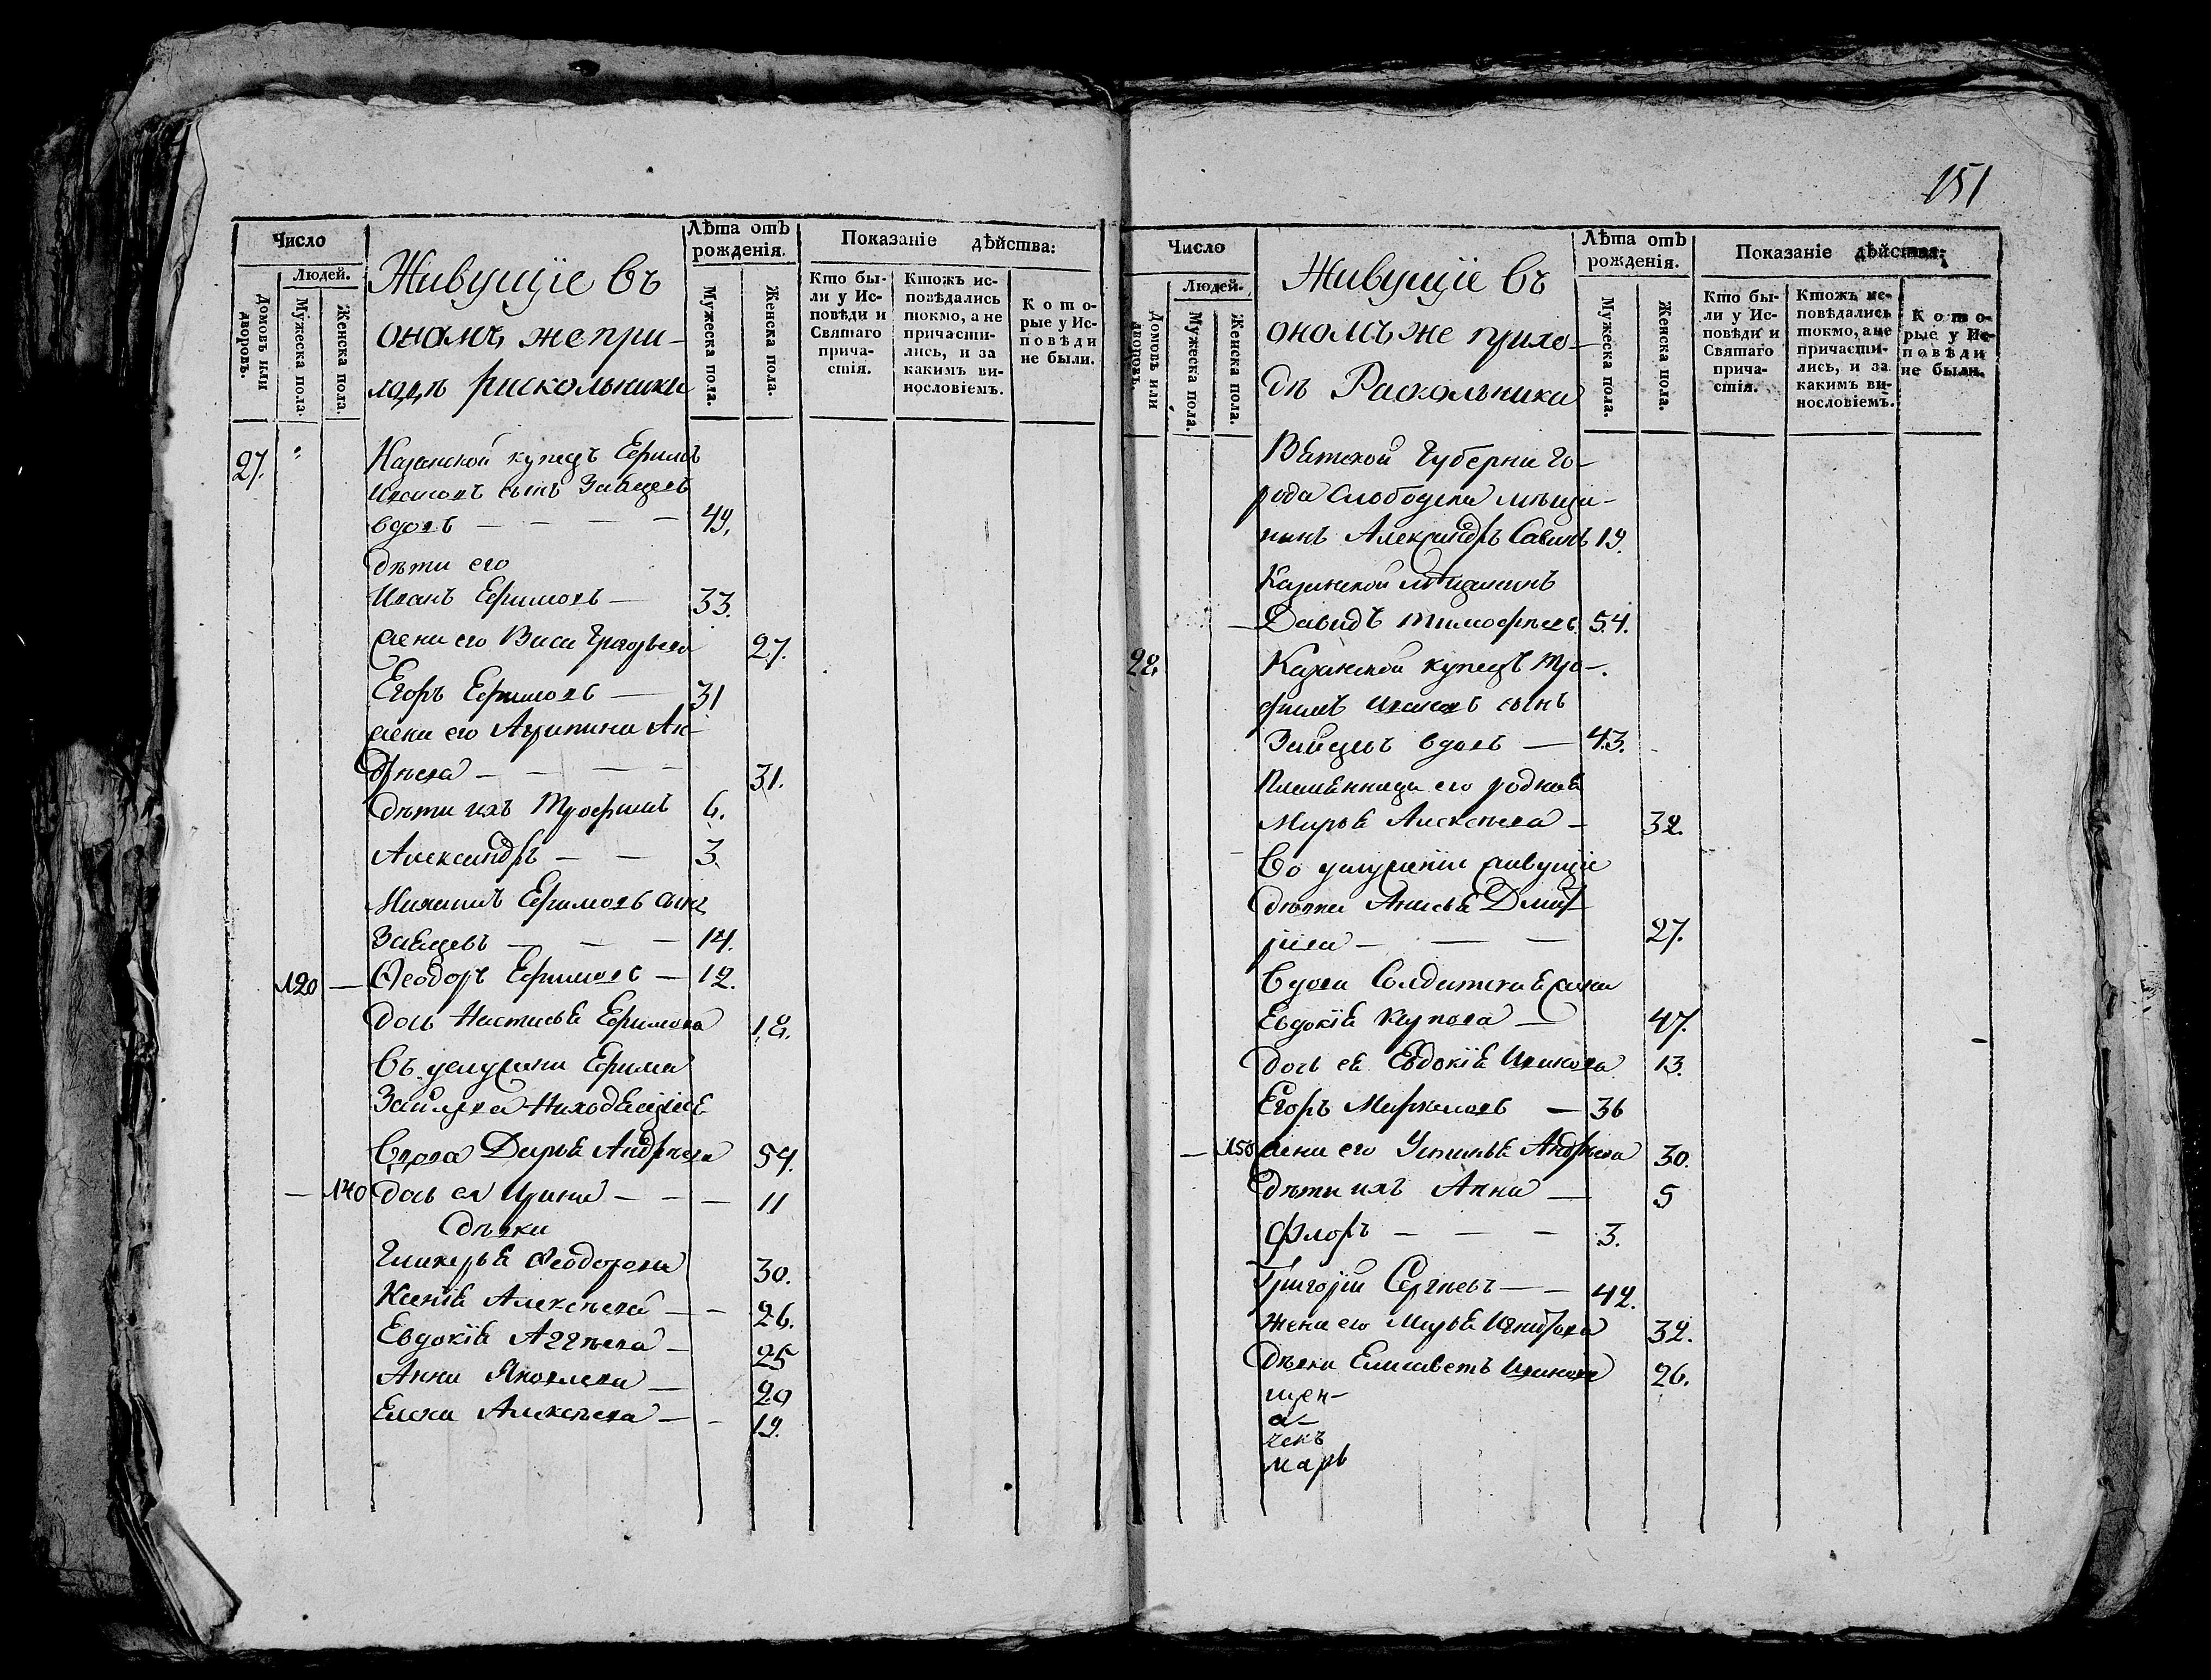 151
Число
Людей.
Домовъ или дворовъ.
Мужеска пола.
Женска пола.
Живущіе въ
ономъ же при-
ходѣ раскольники
Лѣта отъ
рожденія.
Мужеска пола.
Женска пола.
Показаніе дѣйства:
Кто бы-
ли у Ис-
повѣди и
Святаго
прича-
стія.
Ктожъ ис-
повѣдались
токмо, а не
причасти-
лись, и за
какимъ ви-
нословіемъ.
Кото-
рые у Ис-
повѣди
не были.
27. Казанской купецъ Ефимъ
Ивановъ сынъ Зайцевъ
вдовъ — — — — 49.
дѣти его
Иванъ Ефимовъ — 33.
жена его Васа 27.
Егоръ Ефимовъ — 31
жена его Агрипина Ан-
дрѣева — — — — 31.
дѣти ихъ Трофимъ 6.
Александръ — — 3.
Михаилъ Ефимовъ сынъ
Зайцевъ — — — 14.
120 — Ѳеодоръ Ефимовъ — 12.
дочь Настасья Ефимова 18.
Въ услужени Ефима
Зайцева находящіеся
Вдова Дарья Андрѣева 54.
— 140 дочь ея Ирина — — — 11
дѣвки
Гликерья Ѳеодорова 30.
Ксенія Алексѣева — — 26.
Евдокія Аггѣева — 25
Анна Яковлева — 20
Елена Алексѣева — — 19.
Число
Людей.
Домовъ или дворовъ.
Мужеска пола.
Женска пола.
Живущіе въ
ономъ же прихо-
дѣ Раскольники
Лѣта отъ
рожденія.
Мужеска пола.
Женска пола.
Показаніе дѣйства:
Кто бы-
ли у Ис-
повѣди и
Святаго
прича-
стія.
Ктожъ ис-
повѣдались
токмо, а не
причасти-
лись, и за
какимъ ви-
нословіемъ.
Кото-
рые у Ис-
повѣди
не были.
Вятской Губерни го-
рода Слободска мѣща-
нинъ Александръ Савинъ 19.
Казанской мѣщанинъ
— Давидъ Тимофѣевъ 54.
28. Казанской купецъ Тро-
фимъ Ивановъ сынъ
Зайцевъ вдовъ — 43.
Племянница его родная
Марья Алексѣева — 32.
Во услуженіи живущіе
дѣвки Анисья Дмит-
ріева — — — 27.
вдова Солдатская жена
Евдокія Карпова — 47.
дочь ея Евдокія Иванова 13.
Егоръ Маркеловъ — 36
— 150 жена его Устинья Андрѣева 30.
дѣти ихъ Анна — 5
Флоръ — — — 3.
Григорій Сергѣевъ — — 42.
жена его Марья Игнатьева 32.
дѣвка Елисаветъ Иванова 26.
щен-
а-
чекъ
Марь